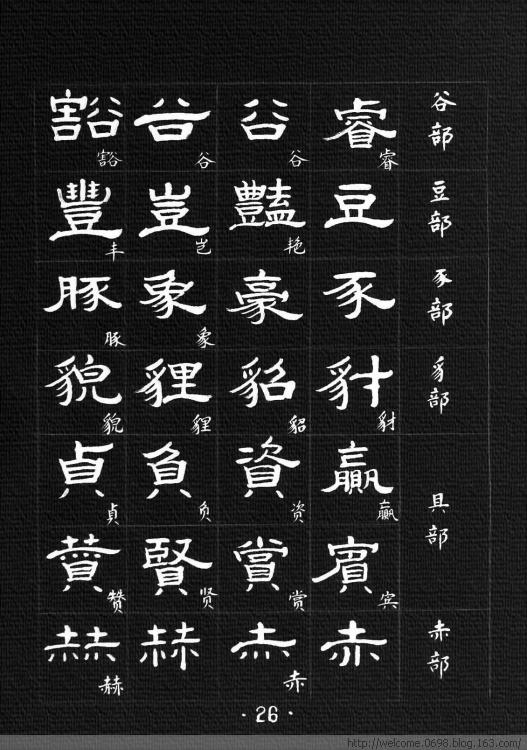 谷部
睿 谷 谷 豁
睿 谷 谷 豁
豆部
豆 豔 豈 豐
艳 岂 丰
豕部
豕 豪 象 豚
象 豚
豸部
豺 貂 貍 貌
豺 貂 貍 貌
具部
贏 資 負 貞
贏 资 负 貞
賓 賞 賢 贊
宾 赏 贤 赞
赤部
赤 赤 赫 赫
赤 赫
·26·
http://welcome.0698.blog.163.com/